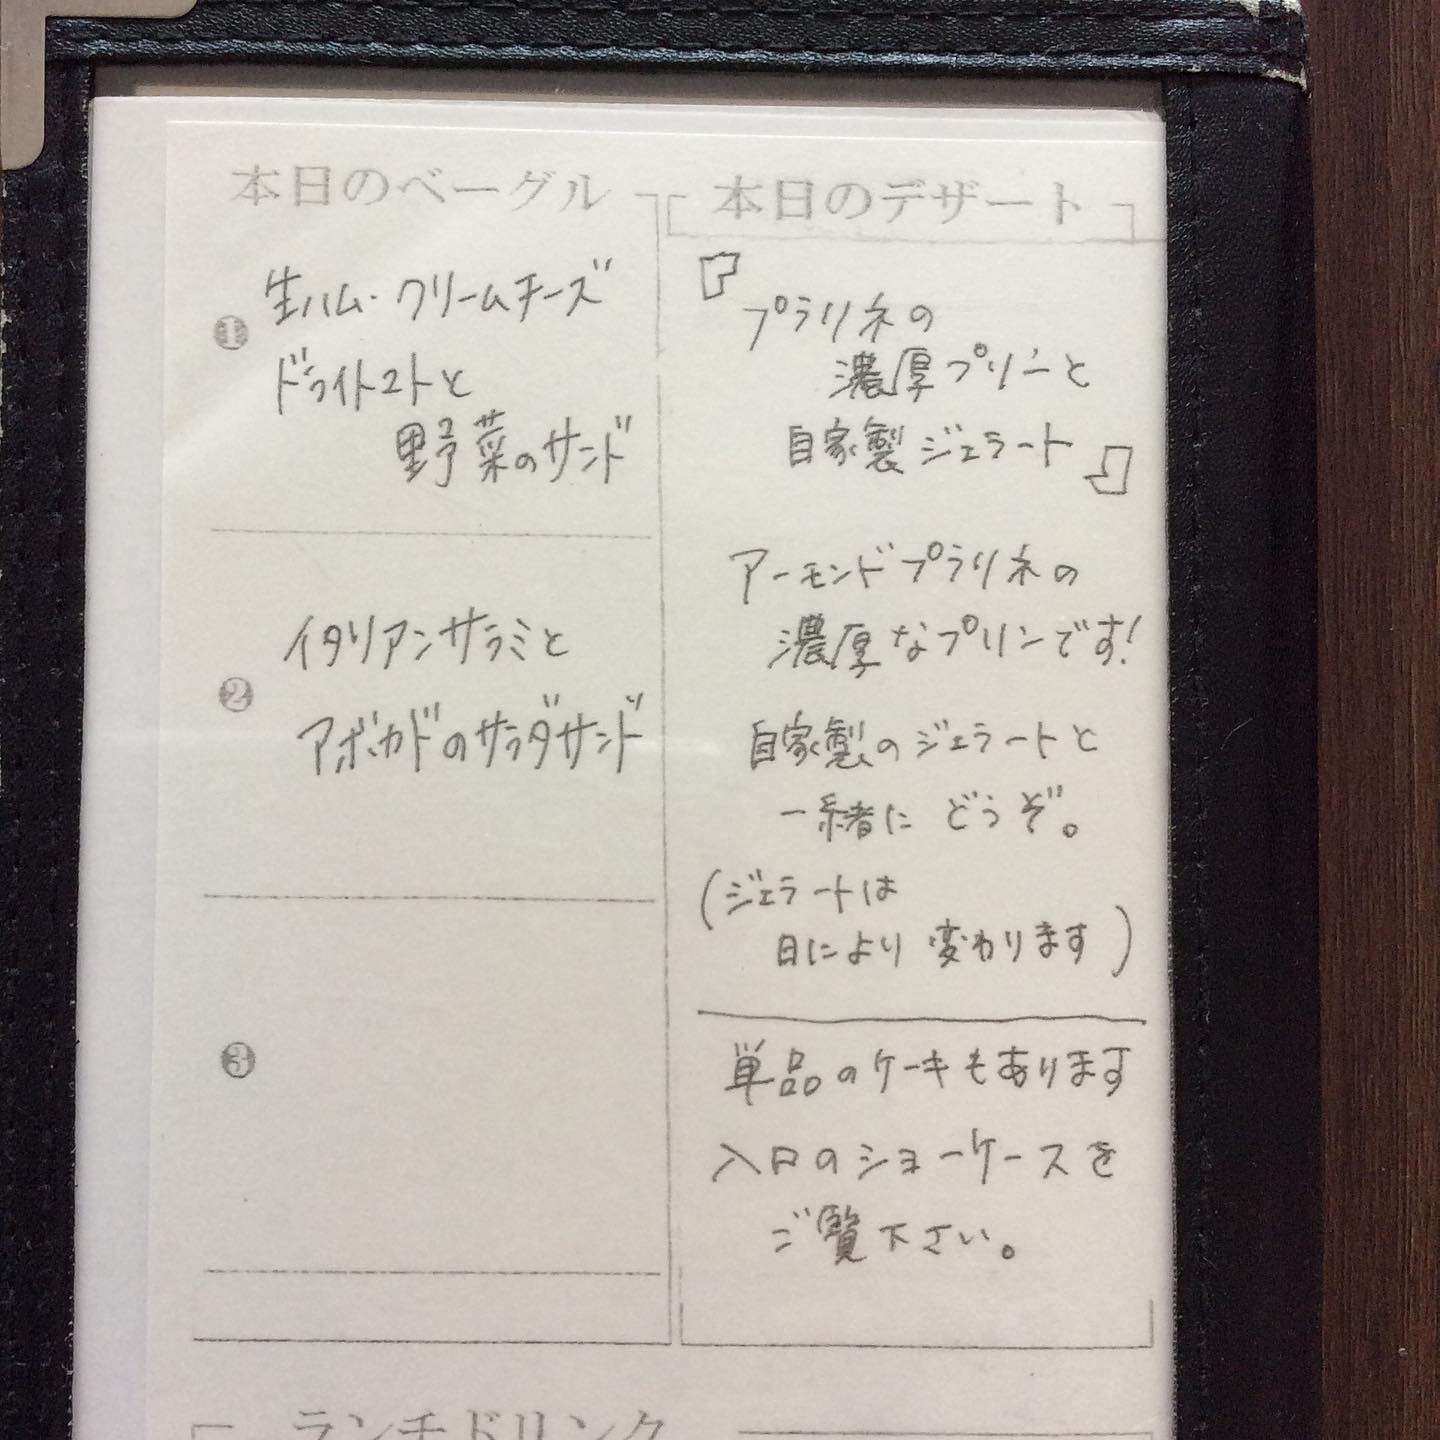 本日のベーグル
❶
生ハム・クリームチーズ
ドライトマトと
野菜のサンド
❷
イタリアンサラミと
アボカドのサラダサンド
❸
本日のデザート
『プラリネの
濃厚プリンと
自家製ジェラート』
アーモンドプラリネの
濃厚なプリンです!
自家製のジェラートと
一緒にどうぞ。
(ジェラートは
日により変わります)
単品のケーキもあります
入口のショーケースを
ご覧下さい。
ランチドリンク